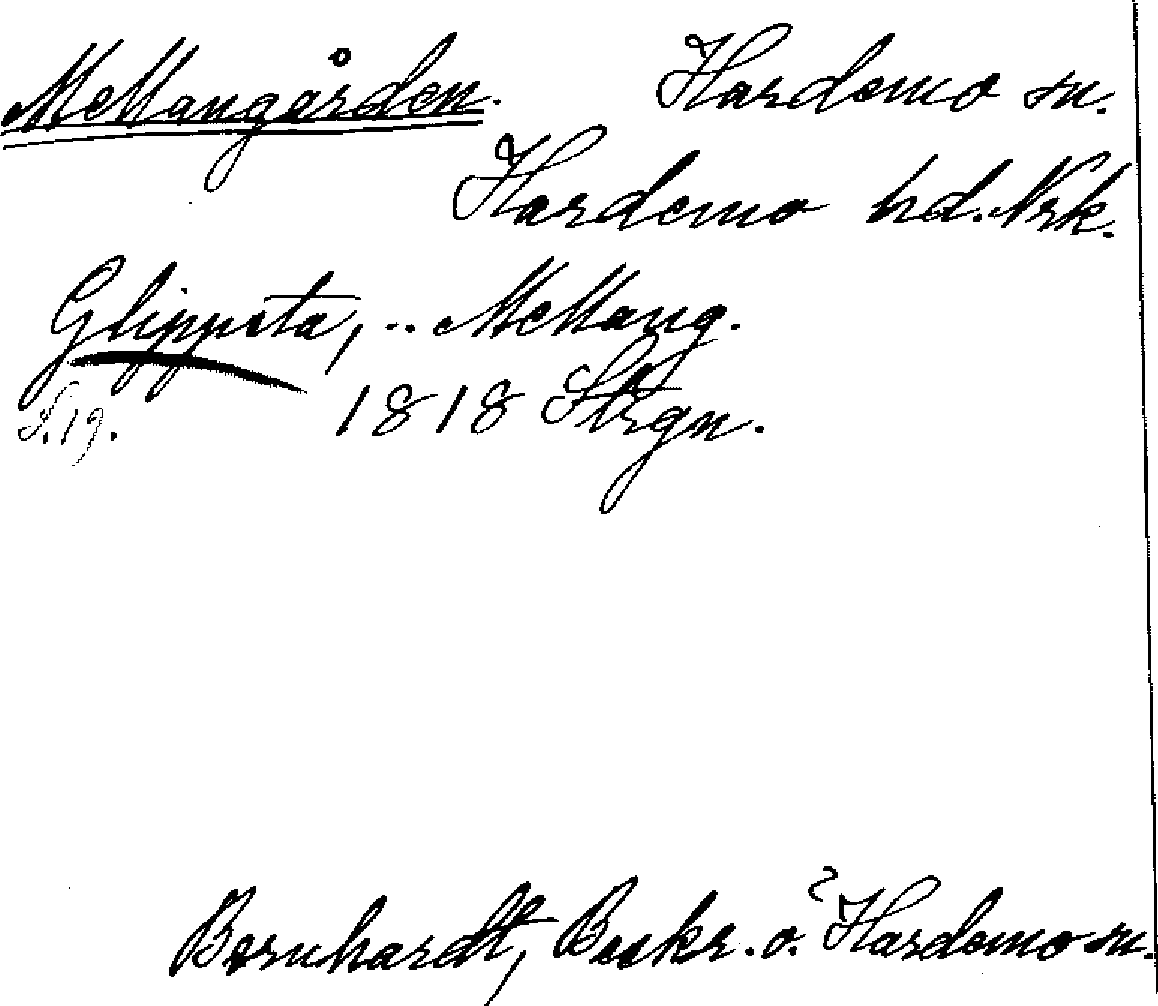 Mellangården. Hardemo sn.
Hardemo hd. Nrk.
Glippsta, .. Mellang.
S. 19. 1818 Strgn.
Bernhardt, Beskr. o. Hardemo sn.